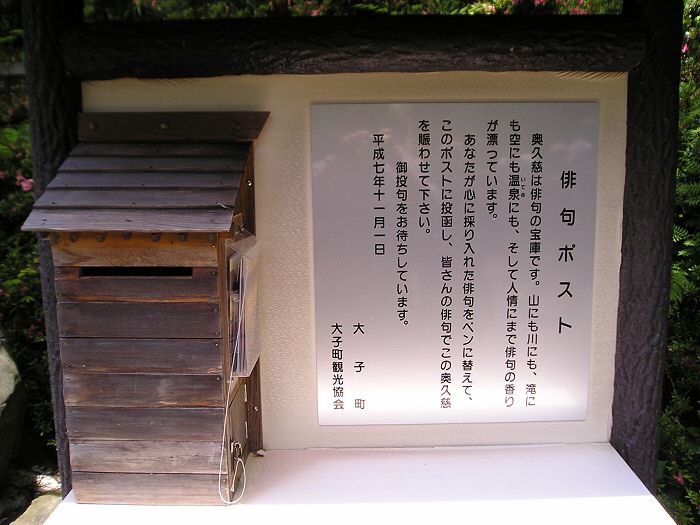 俳句ポスト
奥久慈は俳句の宝庫です。山にも川にも、滝に
も空にも温泉にも、そして人情にまで俳句の香り
が漂っています。
あなたが心に採り入れた俳句をペンに替えて、
このポストに投函し、皆さんの俳句でこの奥久慈
を賑わせて下さい。
御投句をお待ちしています。
平成七年十一月一日
大子町
大子町観光協会